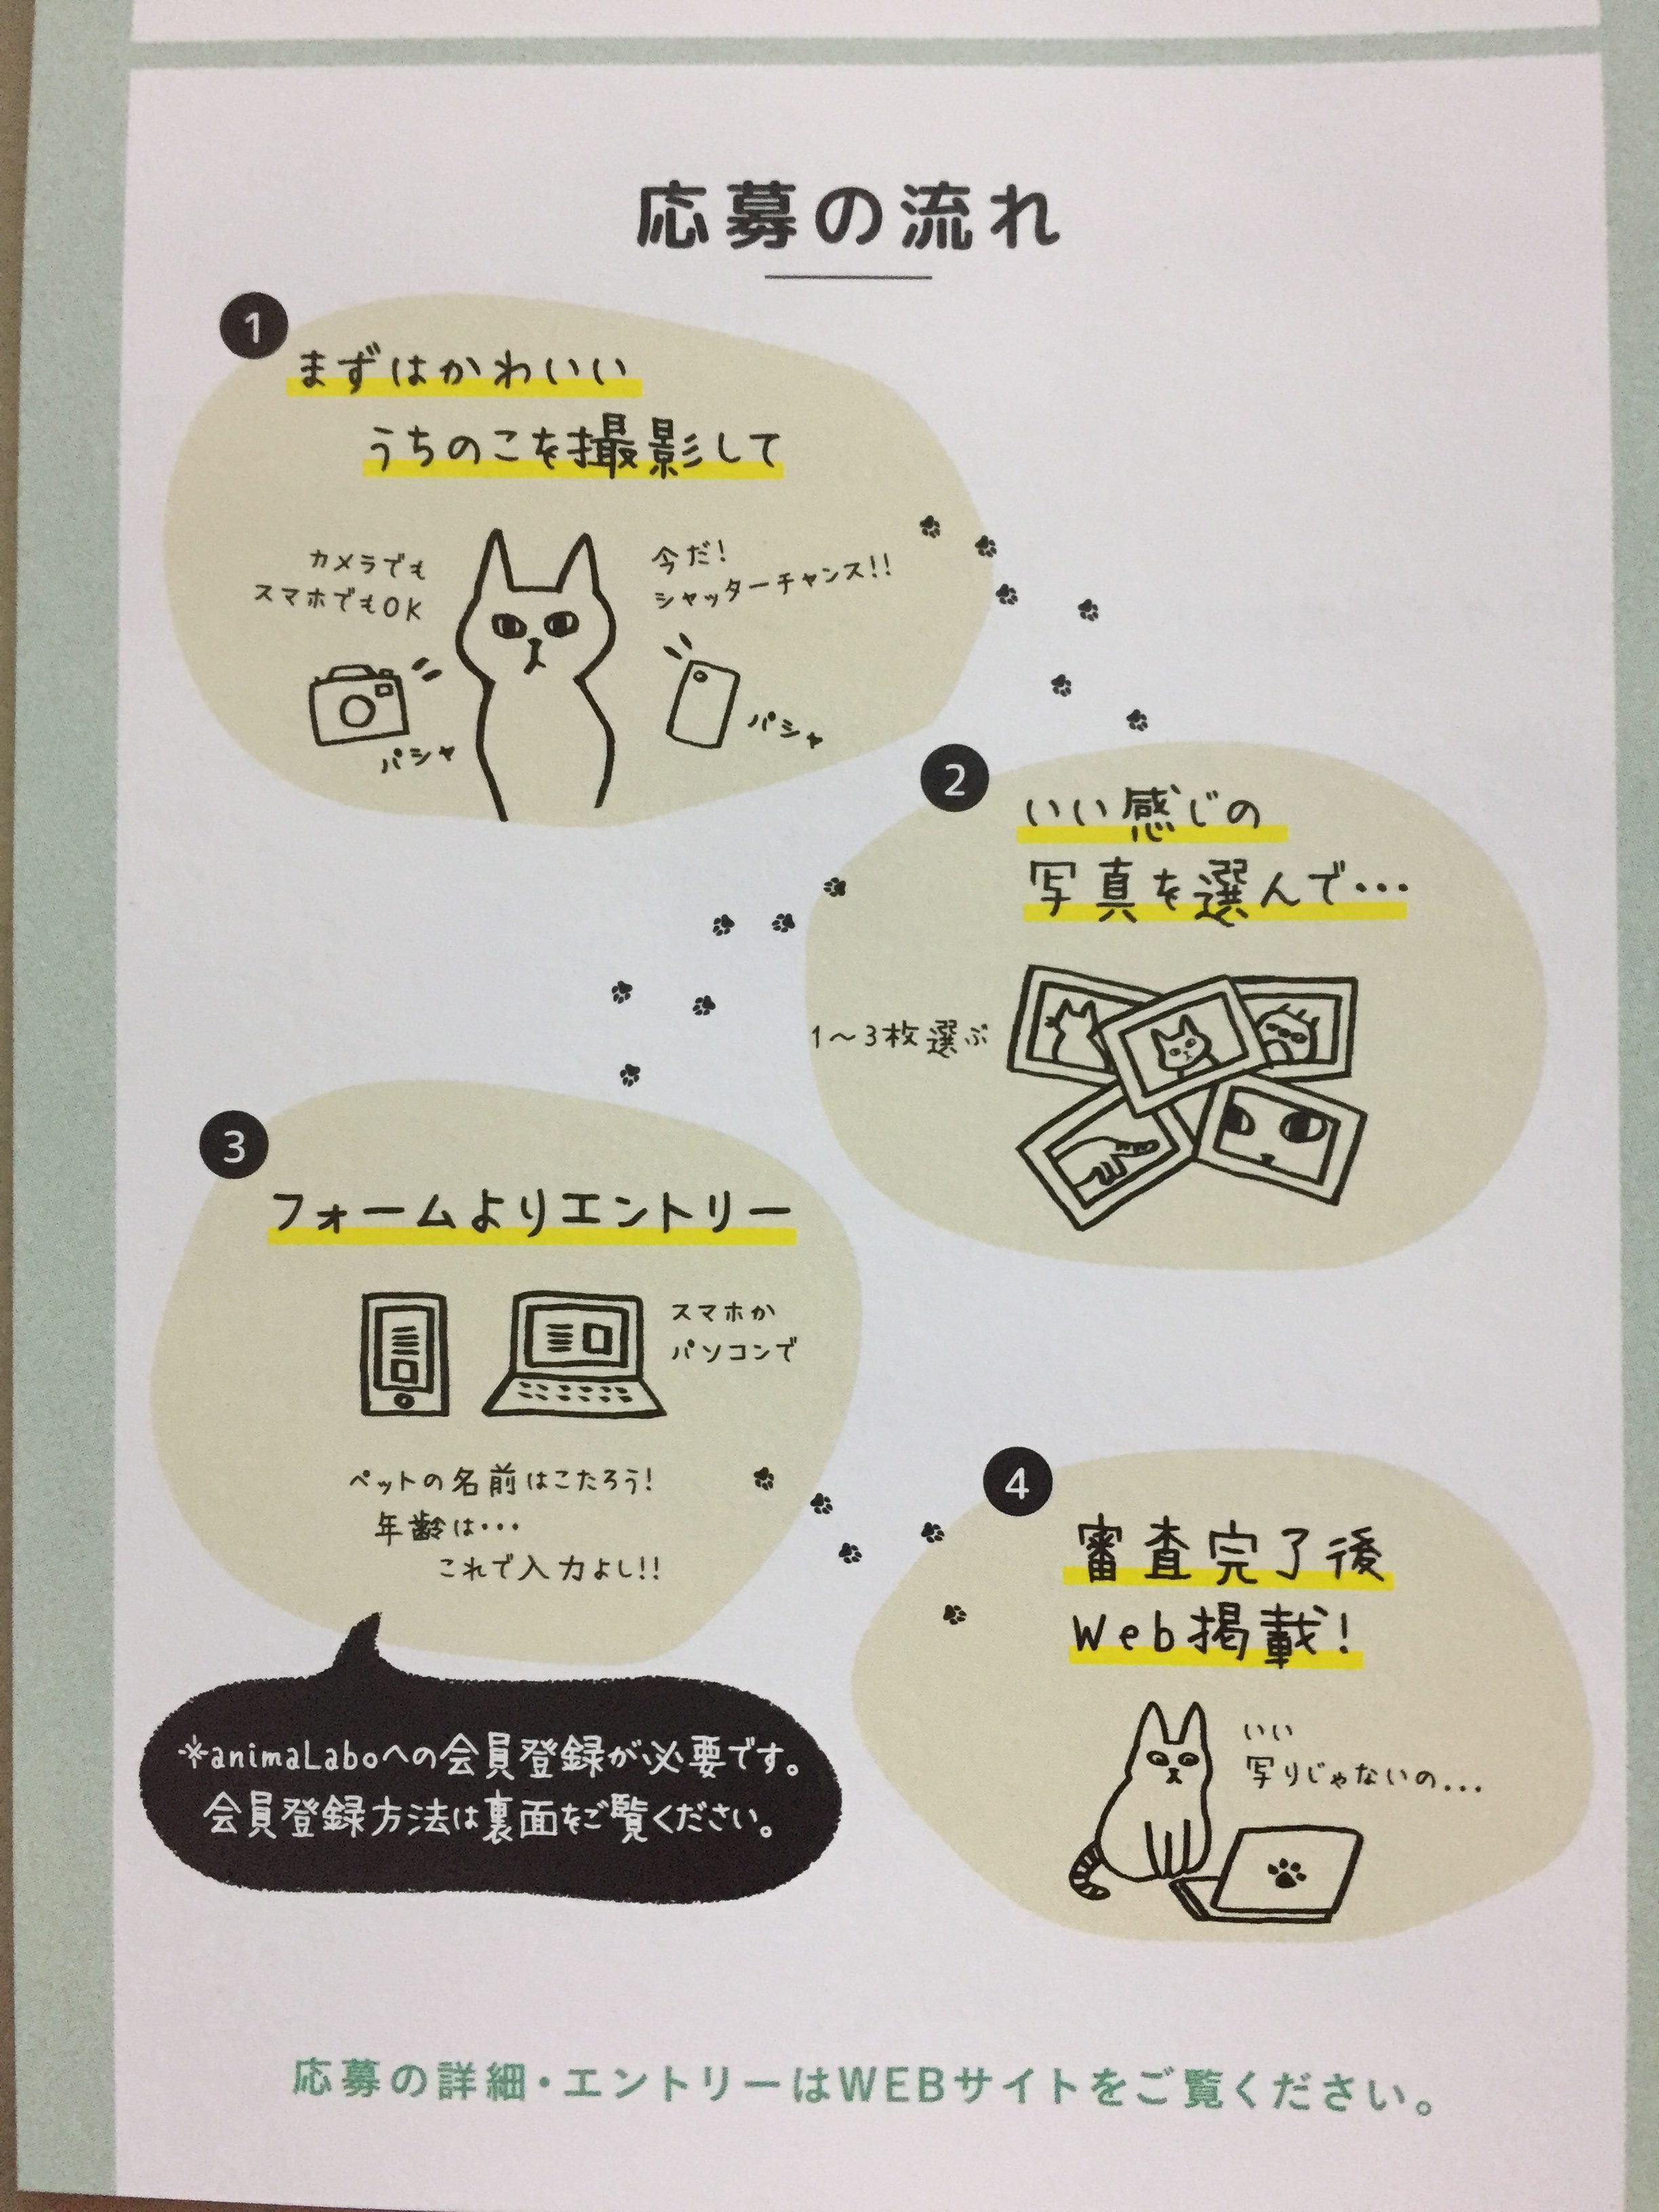 応募の流れ
1
まずはかわいい
うちのこを撮影して
カメラでも
スマホでもOK
今だ！
シャッターチャンス!!
パシャ
パシャ
2
いい感じの
写真を選んで…
1〜3枚選ぶ
3
フォームよりエントリー
スマホか
パソコンで
ペットの名前はこたろう！
年齢は…
これで入力よし!!
※animaLaboへの会員登録が必要です。
会員登録方法は裏面をご覧ください。
4
審査完了後
Web掲載！
いい
写りじゃないの...
応募の詳細・エントリーはWEBサイトをご覧ください。